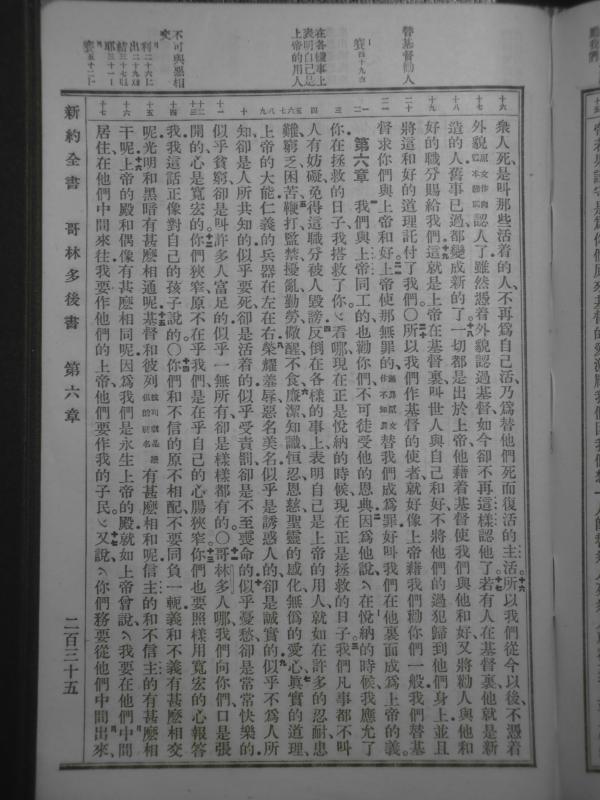 替基督勸人
賽四十九八
在各樣事上
表明自己是
上帝的用人
不可與惡相
交
利二十六十二
出二十九四五
結三十七二七
耶三十一一
賽五十二十一
十六 衆人死是叫那些活着的人、不再爲自己活乃爲替他們死而復活的主活所以我們從今以後不憑着
十七 外貌認人了雖然憑着外貌認過基督如今卻不再這樣認他了若有人在基督裏他就是新
十八 造的人舊事已過都變成新的了一切都是出於上帝他藉着基督使我們與他和好又將勸人與他和
十九 好的職分賜給我們這就是上帝在基督裏叫世人與自己和好不將他們的過犯歸到他們身上並且
二十 將這和好的道理託付了我們〇所以我們作基督的使者就好像上帝藉我們勸你們一般我們替基
二一 督求你們與上帝和好上帝使那無罪的替我們成爲罪好叫我們在他裏面成爲上帝的義。
第六章 我們與上帝同工的也勸你們不可徒受他的恩典因爲他說在悅納的時候我應允了
三 你在拯救的日子我搭救了你看哪現在正是悅納的時候現在正是拯救的日子我們凡事都不叫
四 人有妨礙免得這職分被人毀謗反倒在各樣的事上表明自己是上帝的用人就如在許多的忍耐患
五六七 難窮乏困苦鞭打監禁擾亂勤勞儆醒不食廉潔知識恒忍恩慈聖靈的感化無僞的愛心眞實的道理
八九 上帝的大能仁義的兵器在左在右榮耀羞辱惡名美名似乎是誘惑人的卻是誠實的似乎不爲人所
十 知卻是人所共知的似乎要死卻是活着的似乎受責罰卻是不至喪命的似乎憂愁卻是常常快樂的
十一 似乎貧窮卻是叫許多人富足的似乎一無所有卻是樣樣都有的〇哥林多人哪我們向你們口是張
十二十三 開的心是寬宏的你們狹窄原不在乎我們是在乎自己的心腸狹窄你們也要照樣用寬宏的心報答
十四 我我這話正像對自己的孩子說的〇你們和不信的原不相配不要同負一軛義和不義有甚麼相交
十五 呢光明和黑暗有甚麼相通呢基督和彼列有甚麼相和呢信主的和不信主的有甚麼相
十六 干呢上帝的殿和偶像有甚麼相同呢因爲我們是永生上帝的殿就如上帝曾說我要在他們中間
十七 居住在他們中間來往我要作他們的上帝他們要作我的子民又說你們務要從他們中間出來、
新約全書 哥林多後書 第六章 二百三十五